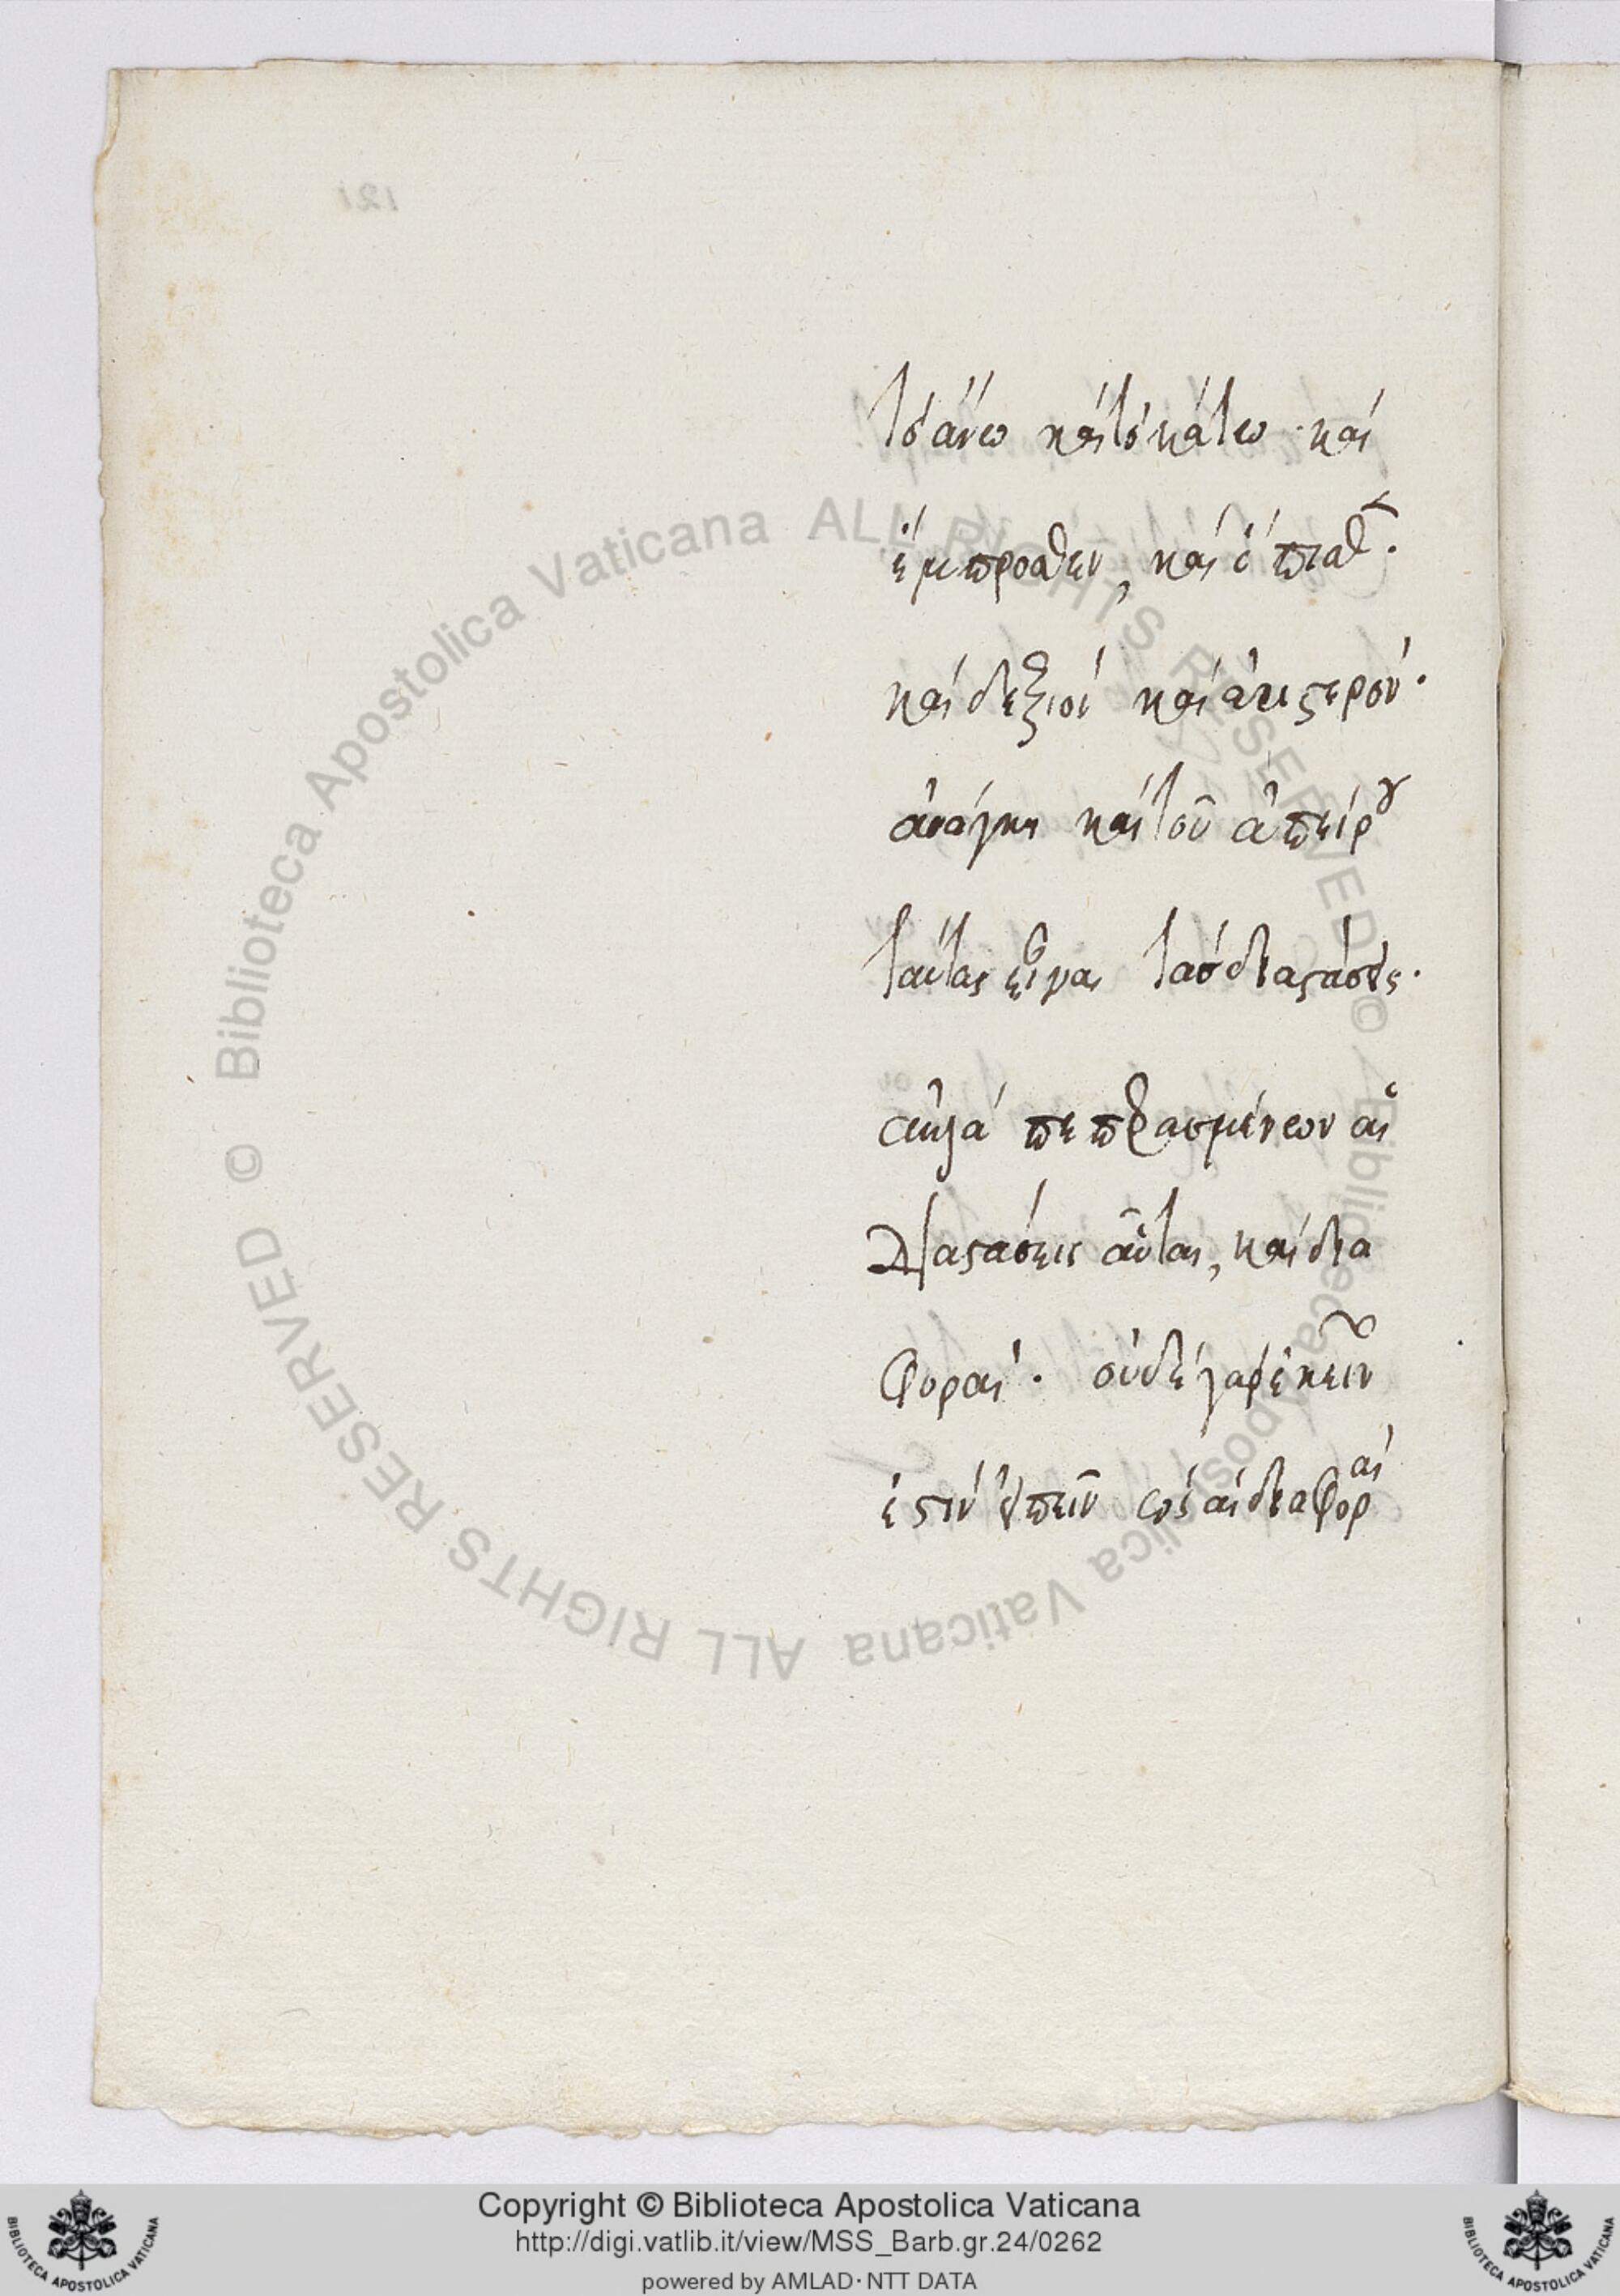 τὸ ἄνω καὶ τὸ κάτω · καὶ
ἔμπροσθεν, καὶ ὄπισθ ·
καὶ δεξιοὶ καὶ ἀριστερὸν ·
ἀνάγκη καὶ τοῦ ἀπείρου
ταύτας εἶναι τὰς διαστάσεις ·
ἀλλὰ πεπερασμένων αἱ
διαστάσεις αὗται, καὶ δια
φοραί · οὐδὲ γὰρ ἐκεῖν
ἐστιν εἰπεῖν ὡς αἱ διαφοραὶ
121
© Biblioteca Apostolica Vaticana ALL RIGHTS RESERVED © Biblioteca Apostolica Vaticana ALL RIGHTS RESERVED
Copyright © Biblioteca Apostolica Vaticana
http://digi.vatlib.it/view/MSS_Barb.gr.24/0262
powered by AMLAD · NTT DATA
BIBLIOTECA APOSTOLICA VATICANA
BIBLIOTECA APOSTOLICA VATICANA